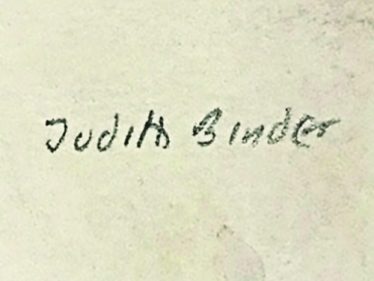 Judith Binder